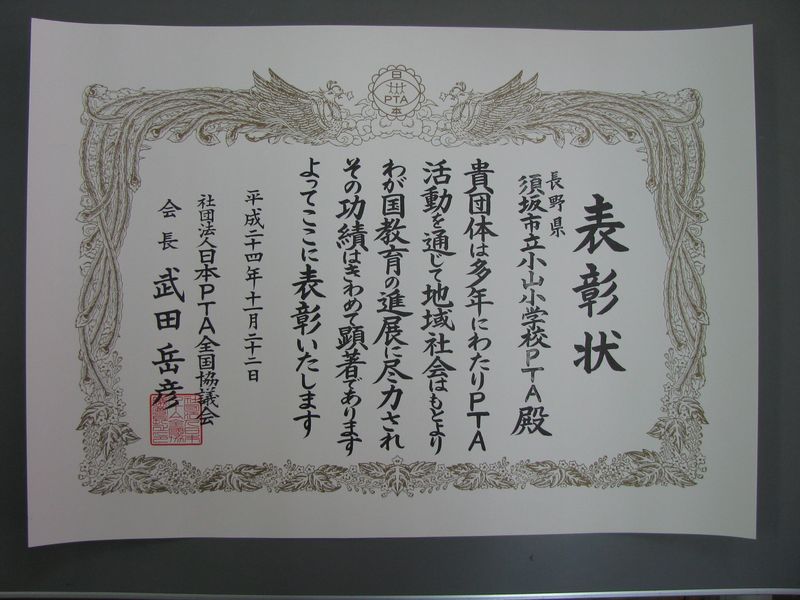 日
PTA
本
表彰状
長野県
須坂市立小山小学校PTA殿
貴団体は多年にわたりPTA
活動を通じて地域社会はもとより
わが国教育の進展に尽力され
その功績はきわめて顕著であります
よってここに表彰いたします
平成二十四年十一月二十二日
社団法人日本PTA全国協議会
会長 武田岳彦